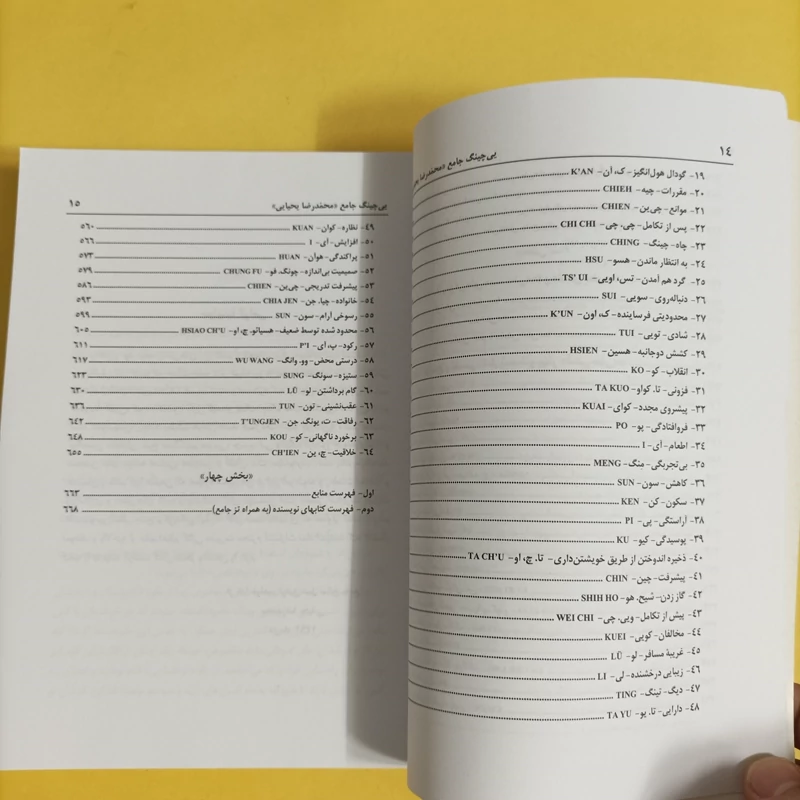 ۱٤
یی‌چینگ جامع «محمّدرضا یحیایی»
۱۹- گودال هول‌انگیز- ک، آن- K'AN
۲۰- مقررات- چیه- CHIEH
۲۱- موانع- چی‌ین- CHIEN
۲۲- پس از تکامل- چی، چی- CHI CHI
۲۳- چاه- چینگ- CHING
۲٤- به انتظار ماندن- هسو- HSU
۲۵- گرد هم آمدن- تس، اویی- TS' UI
۲٦- دنباله‌روی- سویی- SUI
۲۷- محدودیتی فرساینده- ک، اون- K'UN
۲۸- شادی- تویی- TUI
۲۹- کشش دوجانبه- هسین- HSIEN
۳۰- انقلاب- کو- KO
۳۱- فزونی- تا. کواو- TA KUO
۳۲- پیشروی مجدد- کوای- KUAI
۳۳- فروافتادگی- پو- PO
۳٤- اطعام- آی- I
۳۵- بی‌تجربگی- منگ- MENG
۳٦- کاهش- سون- SUN
۳۷- سکون- کن- KEN
۳۸- آراستگی- پی- PI
۳۹- پوسیدگی- کیو- KU
٤۰- ذخیره اندوختن از طریق خویشتن‌داری- تا. چ، او- TA CH'U
٤۱- پیشرفت- چین- CHIN
٤۲- گاز زدن- شیح. هو- SHIH HO
٤۳- پیش از تکامل- ویی. چی- WEI CHI
٤٤- مخالفان- کویی- KUEI
٤۵- غریبهٔ مسافر- لو- LÜ
٤٦- زیبایی درخشنده- لی- LI
٤۷- دیگ- تینگ- TING
٤۸- دارایی- تا. یو- TA YU
یی‌چینگ جامع «محمّدرضا یحیایی» ۱۵
٤۹- نظاره- کوان- KUAN ۵٦۰
۵۰- افزایش- آی- I ۵٦٦
۵۱- پراکندگی- هوآن- HUAN ۵۷۳
۵۲- صمیمیت بی‌اندازه- چونگ. فو- CHUNG FU ۵۷۹
۵۳- پیشرفت تدریجی- چی‌ین- CHIEN ۵۸٦
۵٤- خانواده- چیا. جن- CHIA JEN ۵۹۳
۵۵- رسوخی آرام- سون- SUN ۵۹۹
۵٦- محدود شده توسط ضعیف- هسیائو. چ، او- HSIAO CH'U ٦۰۵
۵۷- رکود- پ، آی- P'I ٦۱۱
۵۸- درستی محض- وو. وانگ- WU WANG ٦۱۷
۵۹- ستیزه- سونگ- SUNG ٦۲۳
٦۰- گام برداشتن- لو- LÜ ٦۳۰
٦۱- عقب‌نشینی- تون- TUN ٦۳٦
٦۲- رفاقت- ت، یونگ. جن- T'UNGJEN ٦٤۲
٦۳- برخورد ناگهانی- کو- KOU ٦٤۸
٦٤- خلاقیت- چ، ین- CH'IEN ٦۵۵
«بخش چهار»
اول- فهرست منابع ٦٦۳
دوم- فهرست کتابهای نویسنده (به همراه تز جامع) ٦٦۸